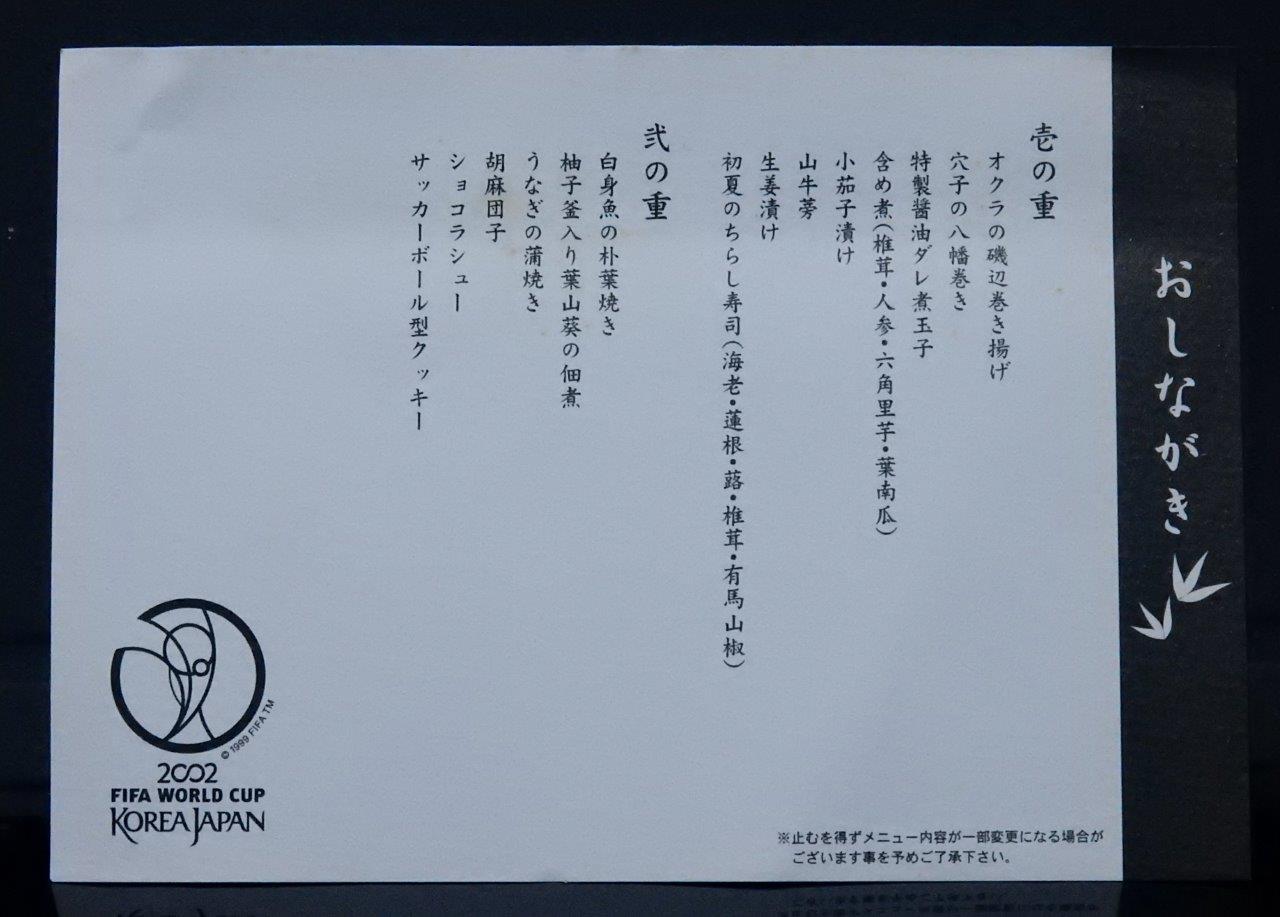 おしながき
壱の重
オクラの磯辺巻き揚げ
穴子の八幡巻き
特製醤油ダレ煮玉子
含め煮(椎茸・人参・六角里芋・葉南瓜)
小茄子漬け
山牛蒡
生姜漬け
初夏のちらし寿司(海老・蓮根・蕗・椎茸・有馬山椒)
弐の重
白身魚の朴葉焼き
柚子釜入り葉山葵の佃煮
うなぎの蒲焼き
胡麻団子
ショコラシュー
サッカーボール型クッキー
※止むを得ずメニュー内容が一部変更になる場合が
ございます事を予めご了承下さい。
© 1999 FIFA TM
2002
FIFA WORLD CUP
KOREA JAPAN